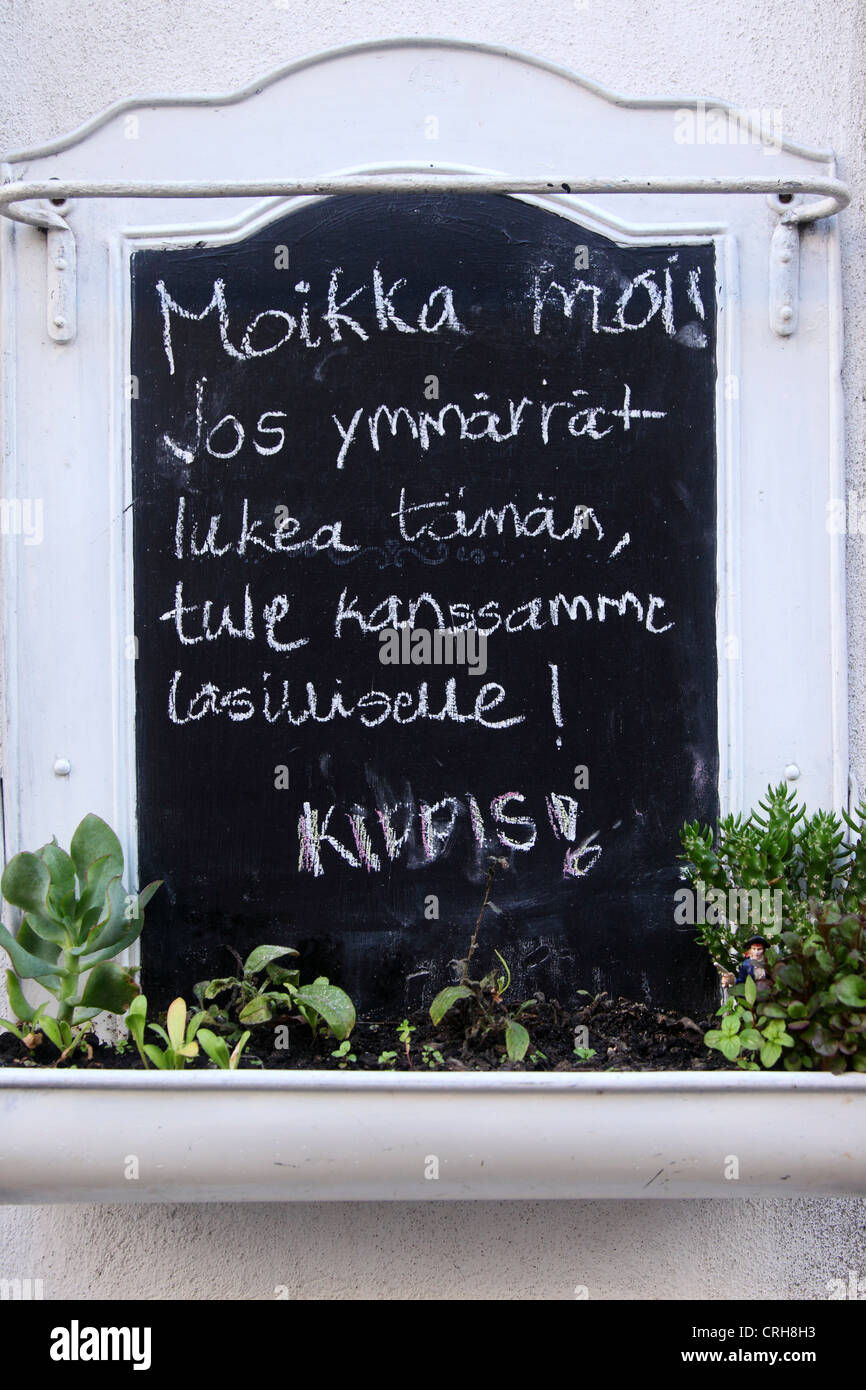 Moikka moi!
Jos ymmärrät
lukea tämän,
tule kanssamme
lasilliselle!
KIPPIS!
alamy
Image ID: CRH8H3
www.alamy.com